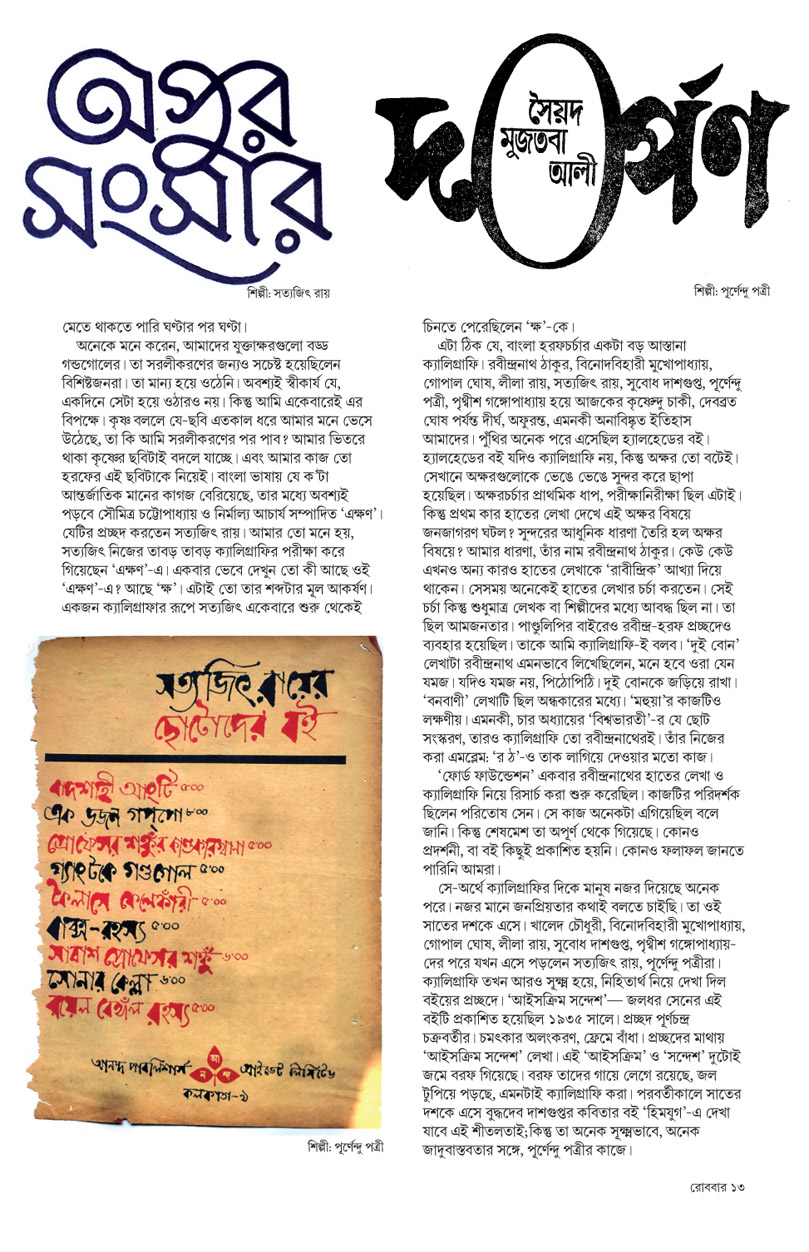 অপুর
সংসার
শিল্পী: সত্যজিৎ রায়
দর্পণ
সৈয়দ
মুজতবা
আলী
শিল্পী: পূর্ণেন্দু পত্রী
মেতে থাকতে পারি ঘণ্টার পর ঘণ্টা।
অনেকে মনে করেন, আমাদের যুক্তাক্ষরগুলো বড্ড
গন্ডগোলের। তা সরলীকরণের জন্যও সচেষ্ট হয়েছিলেন
বিশিষ্টজনরা। তা মান্য হয়ে ওঠেনি। অবশ্যই স্বীকার্য যে,
একদিনে সেটা হয়ে ওঠারও নয়। কিন্তু আমি একেবারেই এর
বিপক্ষে। কৃষ্ণ বললে যে-ছবি এতকাল ধরে আমার মনে ভেসে
উঠেছে, তা কি আমি সরলীকরণের পর পাব? আমার ভিতরে
থাকা কৃষ্ণের ছবিটাই বদলে যাচ্ছে। এবং আমার কাজ তো
হরফের এই ছবিটাকে নিয়েই। বাংলা ভাষায় যে ক’টা
আন্তর্জাতিক মানের কাগজ বেরিয়েছে, তার মধ্যে অবশ্যই
পড়বে সৌমিত্র চট্টোপাধ্যায় ও নির্মাল্য আচার্য সম্পাদিত ‘এক্ষণ’।
যেটির প্রচ্ছদ করতেন সত্যজিৎ রায়। আমার তো মনে হয়,
সত্যজিৎ নিজের তাবড় তাবড় ক্যালিগ্রাফির পরীক্ষা করে
গিয়েছেন ‘এক্ষণ’-এ। একবার ভেবে দেখুন তো কী আছে ওই
‘এক্ষণ’-এ? আছে ‘ক্ষ’। এটাই তো তার শব্দটার মূল আকর্ষণ।
একজন ক্যালিগ্রাফার রূপে সত্যজিৎ একেবারে শুরু থেকেই
সত্যজিৎ রায়ের
ছোটোদের বই
বাদশাহী আংটি ৫·০০
এক ডজন গপ্‌পো ৮·০০
প্রোফেসর শঙ্কুর কাণ্ডকারখানা ৫·০০
গ্যাংটকে গণ্ডগোল ৫·০০
কৈলাসে কেলেঙ্কারী ৫·০০
বাক্স-রহস্য ৫·০০
সাবাশ প্রোফেসর শঙ্কু ৬·০০
সোনার কেল্লা ৬·০০
রয়েল বেঙ্গল রহস্য ৫·০০
আনন্দ পাবলিশার্স আনন্দ প্রাইভেট লিমিটেড
কলকাতা-৯
শিল্পী: পূর্ণেন্দু পত্রী
চিনতে পেরেছিলেন ‘ক্ষ’-কে।
এটা ঠিক যে, বাংলা হরফচর্চার একটা বড় আস্তানা
ক্যালিগ্রাফি। রবীন্দ্রনাথ ঠাকুর, বিনোদবিহারী মুখোপাধ্যায়,
গোপাল ঘোষ, লীলা রায়, সত্যজিৎ রায়, সুবোধ দাশগুপ্ত, পূর্ণেন্দু
পত্রী, পৃথ্বীশ গঙ্গোপাধ্যায় হয়ে আজকের কৃষ্ণেন্দু চাকী, দেবব্রত
ঘোষ পর্যন্ত দীর্ঘ, অফুরন্ত, এমনকী অনাবিষ্কৃত ইতিহাস
আমাদের। পুঁথির অনেক পরে এসেছিল হ্যালহেডের বই।
হ্যালহেডের বই যদিও ক্যালিগ্রাফি নয়, কিন্তু অক্ষর তো বটেই।
সেখানে অক্ষরগুলোকে ভেঙে ভেঙে সুন্দর করে ছাপা
হয়েছিল। অক্ষরচর্চার প্রাথমিক ধাপ, পরীক্ষানিরীক্ষা ছিল এটাই।
কিন্তু প্রথম কার হাতের লেখা দেখে এই অক্ষর বিষয়ে
জনজাগরণ ঘটল? সুন্দরের আধুনিক ধারণা তৈরি হল অক্ষর
বিষয়ে? আমার ধারণা, তাঁর নাম রবীন্দ্রনাথ ঠাকুর। কেউ কেউ
এখনও অন্য কারও হাতের লেখাকে ‘রাবীন্দ্রিক’ আখ্যা দিয়ে
থাকেন। সেসময় অনেকেই হাতের লেখার চর্চা করতেন। সেই
চর্চা কিন্তু শুধুমাত্র লেখক বা শিল্পীদের মধ্যে আবদ্ধ ছিল না। তা
ছিল আমজনতার। পাণ্ডুলিপির বাইরেও রবীন্দ্র-হরফ প্রচ্ছদেও
ব্যবহার হয়েছিল। তাকে আমি ক্যালিগ্রাফি-ই বলব। ‘দুই বোন’
লেখাটা রবীন্দ্রনাথ এমনভাবে লিখেছিলেন, মনে হবে ওরা যেন
যমজ। যদিও যমজ নয়, পিঠোপিঠি। দুই বোনকে জড়িয়ে রাখা।
‘বনবাণী’ লেখাটি ছিল অন্ধকারের মধ্যে। ‘মহুয়া’র কাজটিও
লক্ষণীয়। এমনকী, চার অধ্যায়ের ‘বিশ্বভারতী’-র যে ছোট
সংস্করণ, তারও ক্যালিগ্রাফি তো রবীন্দ্রনাথেরই। তাঁর নিজের
করা এমব্লেম: ‘র ঠ’-ও তাক লাগিয়ে দেওয়ার মতো কাজ।
‘ফোর্ড ফাউন্ডেশন’ একবার রবীন্দ্রনাথের হাতের লেখা ও
ক্যালিগ্রাফি নিয়ে রিসার্চ করা শুরু করেছিল। কাজটির পরিদর্শক
ছিলেন পরিতোষ সেন। সে কাজ অনেকটা এগিয়েছিল বলে
জানি। কিন্তু শেষমেশ তা অপূর্ণ থেকে গিয়েছে। কোনও
প্রদর্শনী, বা বই কিছুই প্রকাশিত হয়নি। কোনও ফলাফল জানতে
পারিনি আমরা।
সে-অর্থে ক্যালিগ্রাফির দিকে মানুষ নজর দিয়েছে অনেক
পরে। নজর মানে জনপ্রিয়তার কথাই বলতে চাইছি। তা ওই
সাতের দশকে এসে। খালেদ চৌধুরী, বিনোদবিহারী মুখোপাধ্যায়,
গোপাল ঘোষ, লীলা রায়, সুবোধ দাশগুপ্ত, পৃথ্বীশ গঙ্গোপাধ্যায়-
দের পরে যখন এসে পড়লেন সত্যজিৎ রায়, পূর্ণেন্দু পত্রীরা।
ক্যালিগ্রাফি তখন আরও সূক্ষ্ম হয়ে, নিহিতার্থ নিয়ে দেখা দিল
বইয়ের প্রচ্ছদে। ‘আইসক্রিম সন্দেশ’— জলধর সেনের এই
বইটি প্রকাশিত হয়েছিল ১৯৩৫ সালে। প্রচ্ছদ পূর্ণচন্দ্র
চক্রবর্তীর। চমৎকার অলংকরণ, ফ্রেমে বাঁধা। প্রচ্ছদের মাথায়
‘আইসক্রিম সন্দেশ’ লেখা। এই ‘আইসক্রিম’ ও ‘সন্দেশ’ দুটোই
জমে বরফ গিয়েছে। বরফ তাদের গায়ে লেগে রয়েছে, জল
টুপিয়ে পড়ছে, এমনটাই ক্যালিগ্রাফি করা। পরবর্তীকালে সাতের
দশকে এসে বুদ্ধদেব দাশগুপ্তর কবিতার বই ‘হিমযুগ’-এ দেখা
যাবে এই শীতলতাই;কিন্তু তা অনেক সূক্ষ্মভাবে, অনেক
জাদুবাস্তবতার সঙ্গে, পূর্ণেন্দু পত্রীর কাজে।
রোববার ১৩